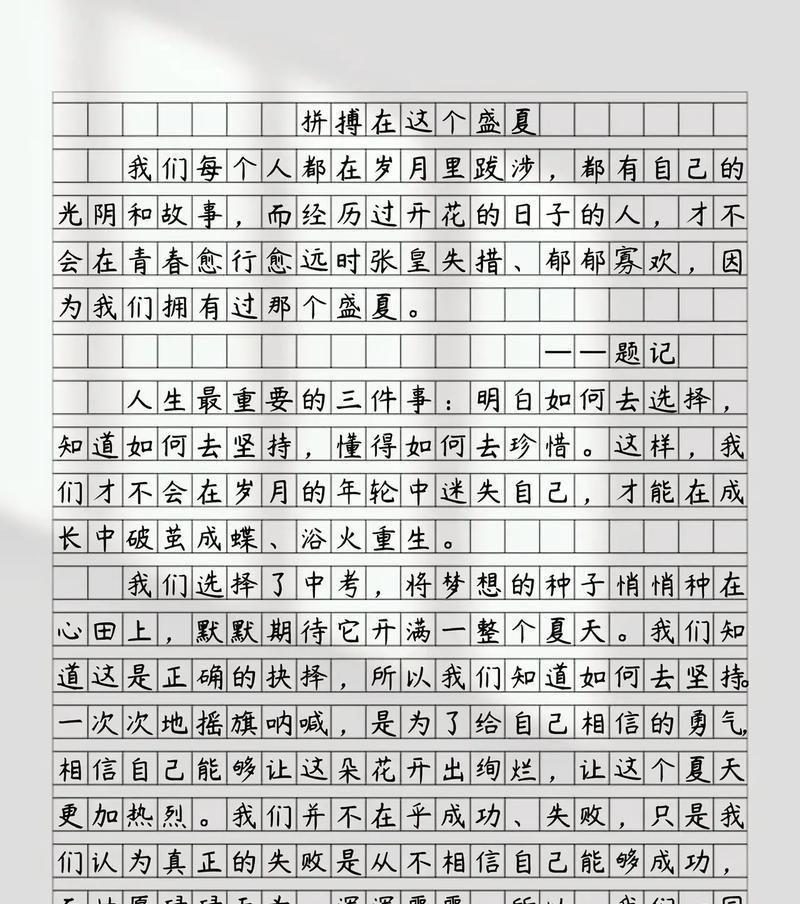 拼搏在这个盛夏
我们每个人都在岁月里跋涉，都有自己的
光阴和故事，而经历过开花的日子的人，才不
会在青春愈行愈远时张皇失措、郁郁寡欢，因
为我们拥有过那个盛夏。
——题记
人生最重要的三件事：明白如何去选择，
知道如何去坚持，懂得如何去珍惜。这样，我
们才不会在岁月的年轮中迷失自己，才能在成
长中破茧成蝶、浴火重生。
我们选择了中考，将梦想的种子悄悄种在
心田上，默默期待它开满一整个夏天。我们知
道这是正确的抉择，所以我们知道如何去坚持。
一次次地摇旗呐喊，是为了给自己相信的勇气，
相信自己能够让这朵花开出绚烂，让这个夏天
更加热烈。我们并不在乎成功、失败，只是我
们认为真正的失败是从不相信自己能够成功，